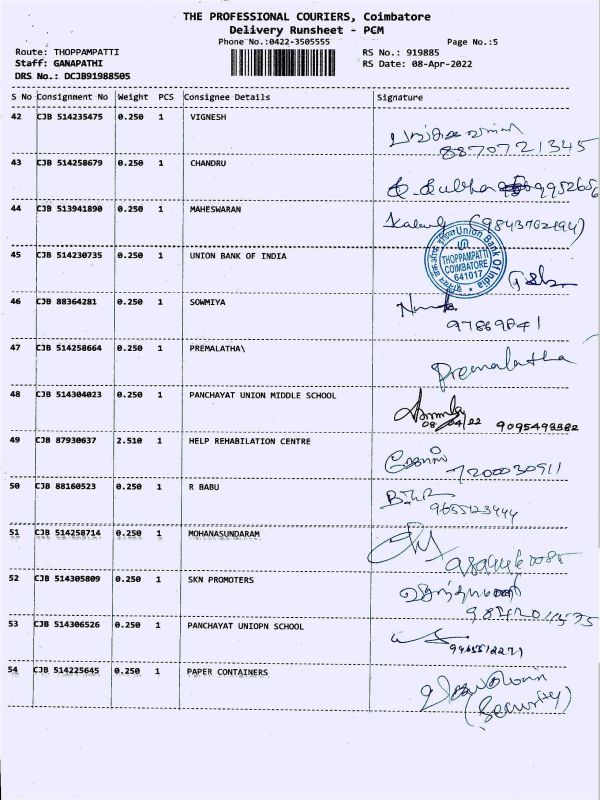 THE PROFESSIONAL COURIERS, Coimbatore
Delivery Runsheet - PCM
Phone No.:0422-3505555 Page No.:5
Route: THOPPAMPATTI RS No.: 919885
Staff: GANAPATHI RS Date: 08-Apr-2022
DRS No.: DCJB91988505
S No Consignment No Weight PCS Consignee Details Signature
42 CJB 514235475 0.250 1 VIGNESH
8870721345
43 CJB 514258679 0.250 1 CHANDRU
44 CJB 513941890 0.250 1 MAHESWARAN
45 CJB 514230735 0.250 1 UNION BANK OF INDIA
Union Bank Of India
THOPPAMPATTI
COIMBATORE
641017
46 CJB 88364281 0.250 1 SOWMIYA
47 CJB 514258664 0.250 1 PREMALATHA\
Premalatha
48 CJB 514304023 0.250 1 PANCHAYAT UNION MIDDLE SCHOOL
08/04/22 9095493382
49 CJB 87930637 2.510 1 HELP REHABILATION CENTRE
7200030911
50 CJB 88160523 0.250 1 R BABU
9655123444
51 CJB 514258714 0.250 1 MOHANASUNDARAM
52 CJB 514305809 0.250 1 SKN PROMOTERS
53 CJB 514306526 0.250 1 PANCHAYAT UNIOPN SCHOOL
54 CJB 514225645 0.250 1 PAPER CONTAINERS
(Security)